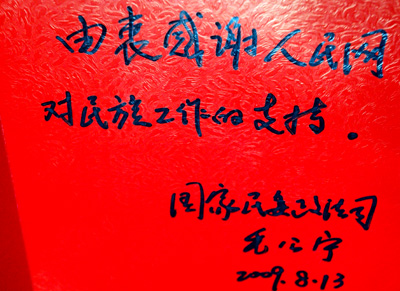 由衷感谢人民网
对民族工作的支持。
国家民委政法司
毛公宁
2009.8.13